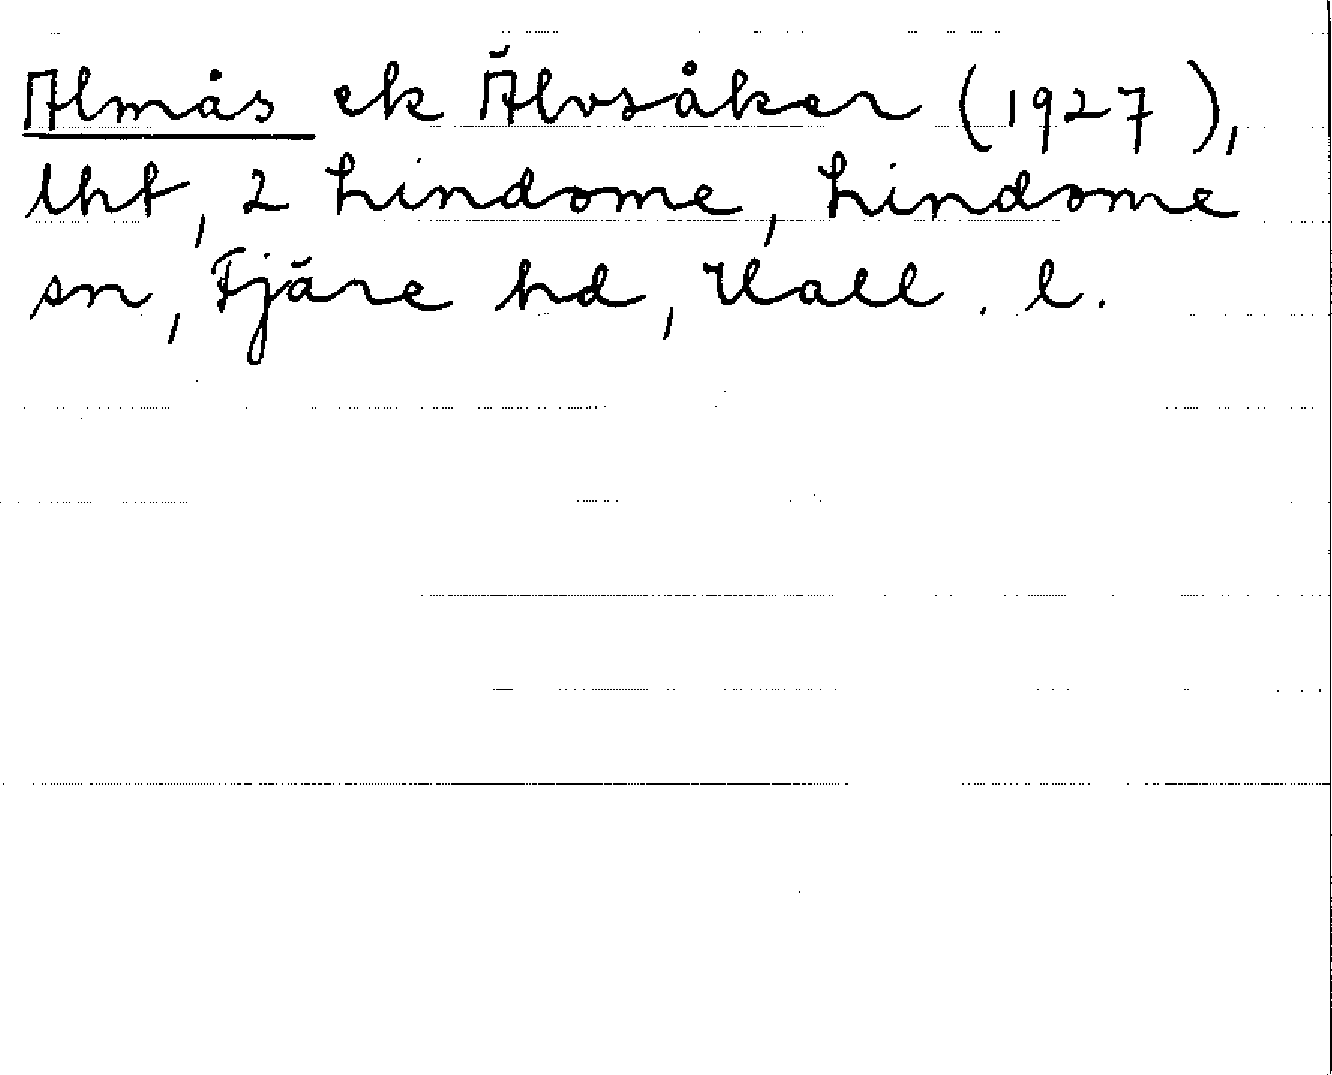 Almås ek Älvsåker (1927),
lht, 2 Lindome, Lindome
sn, Fjäre hd, Hall. l.